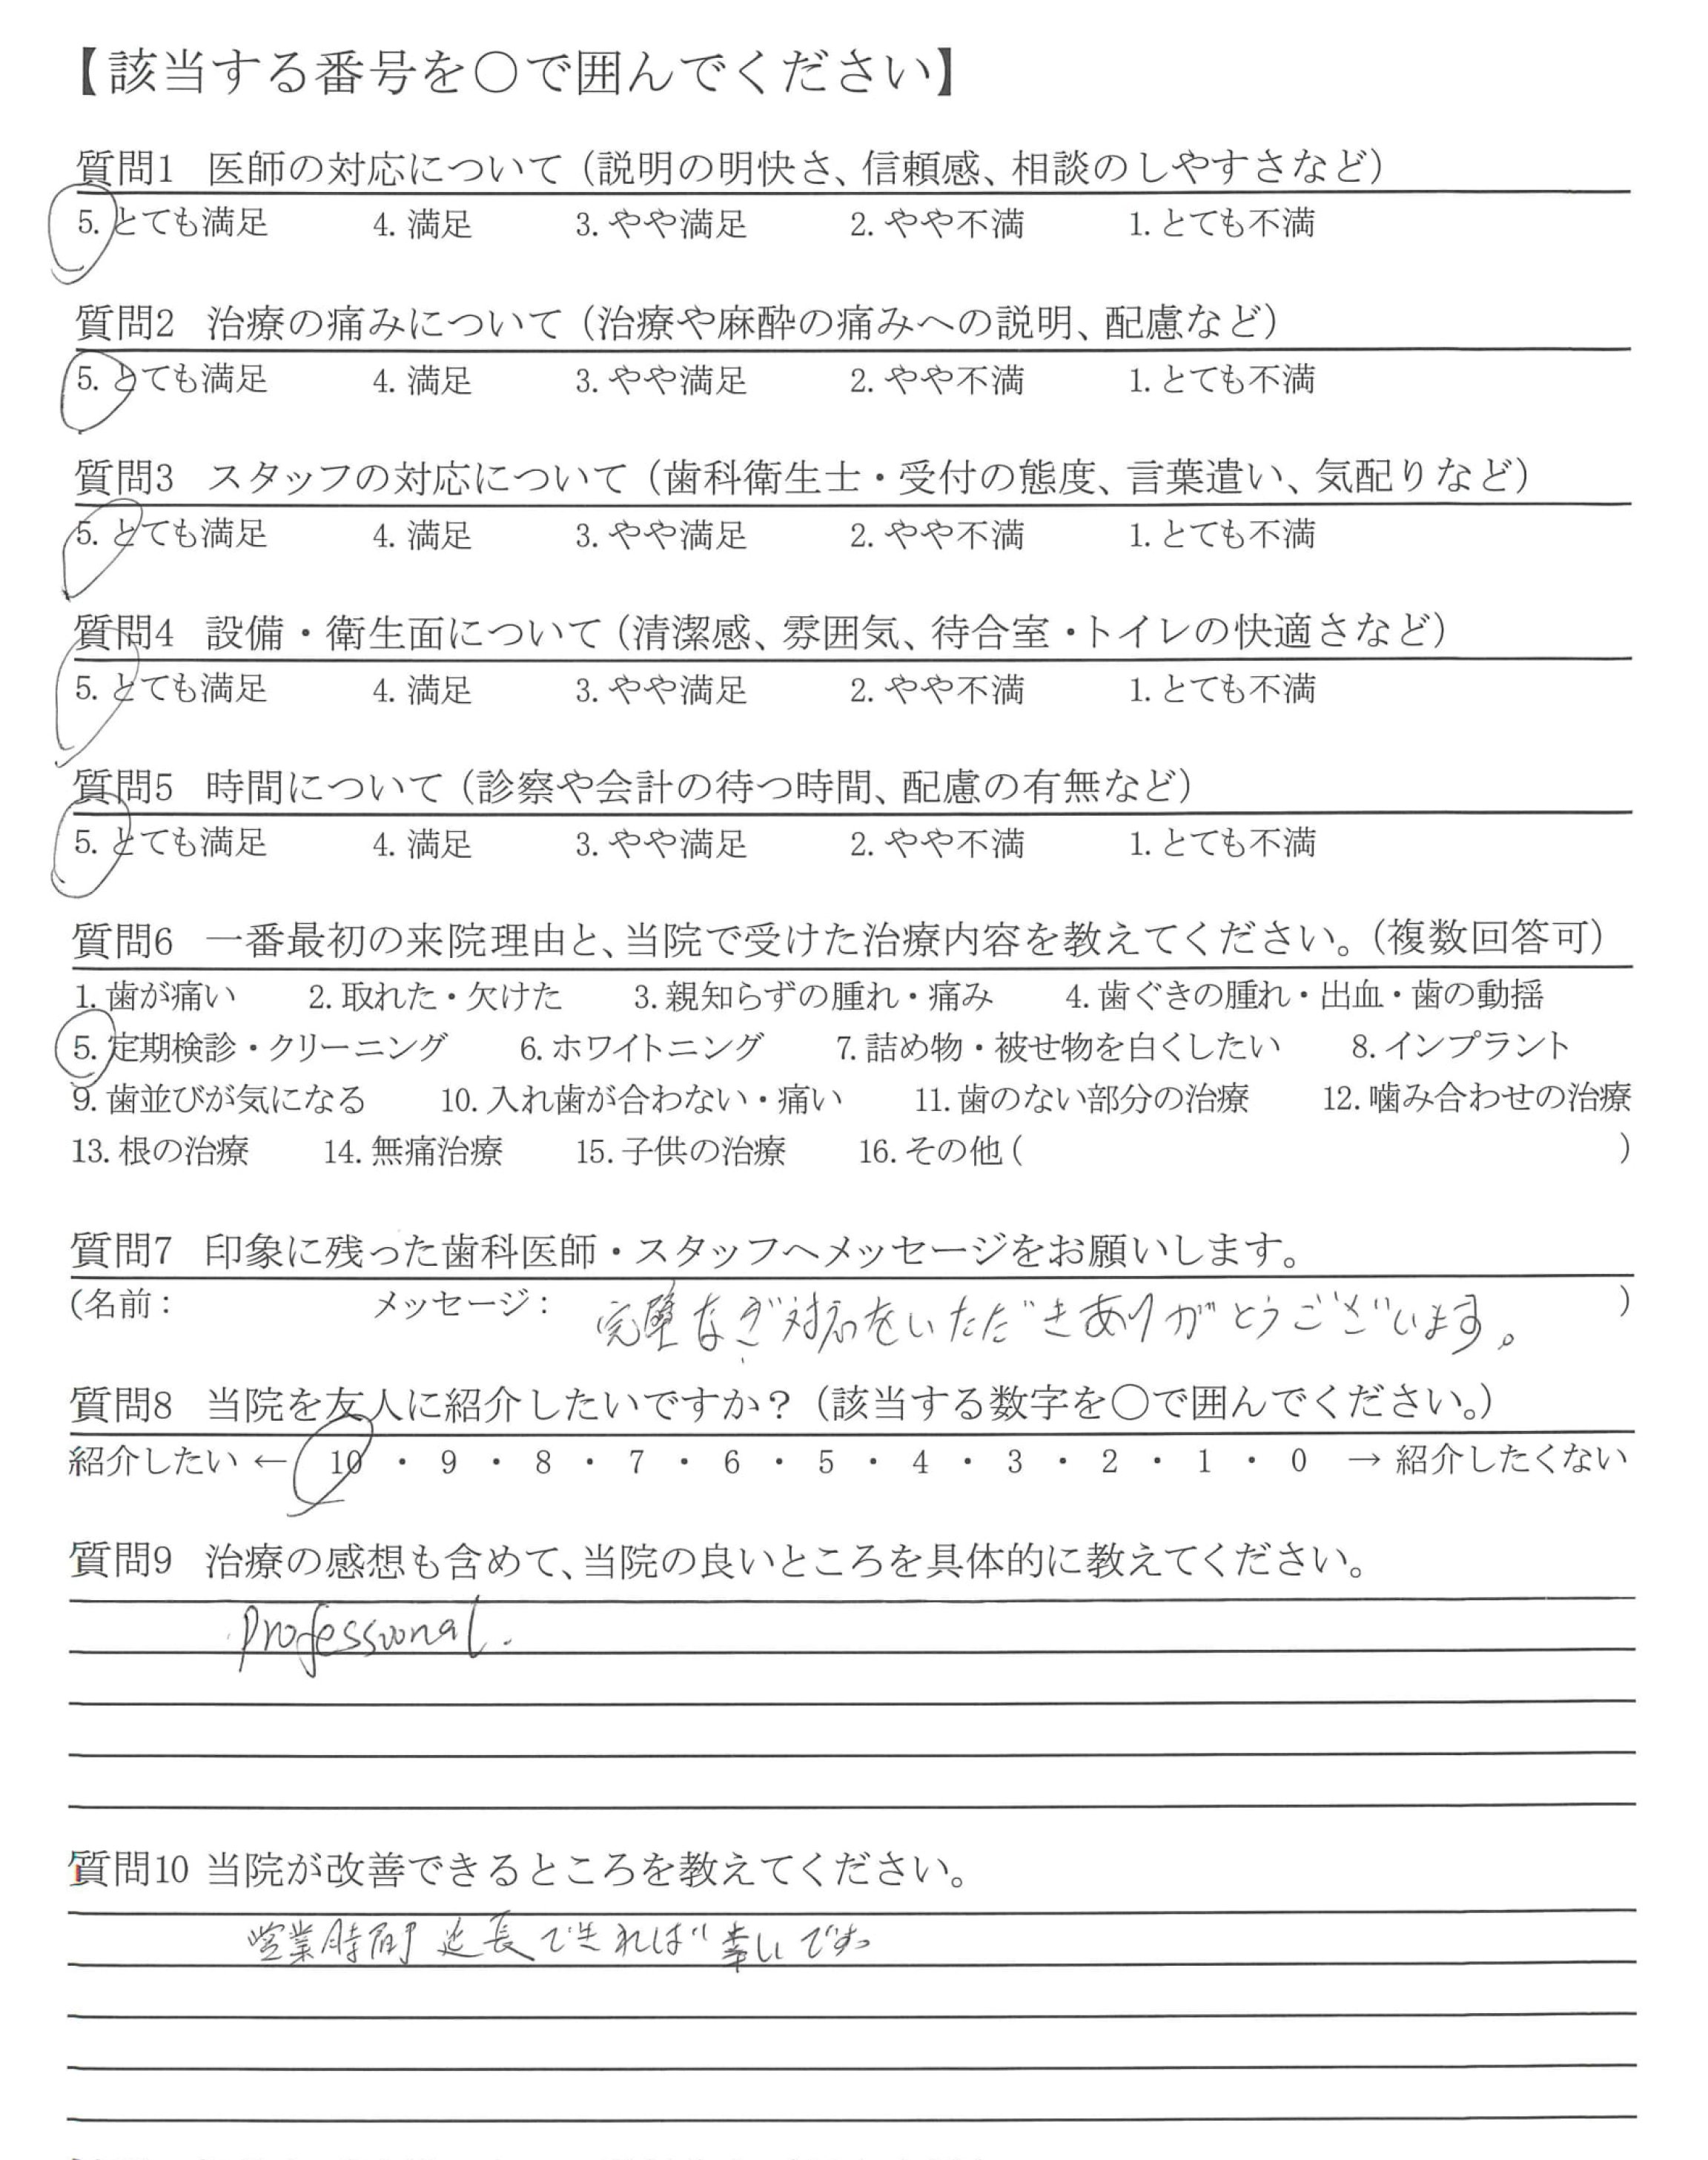 【該当する番号を〇で囲んでください】
質問1 医師の対応について（説明の明快さ、信頼感、相談のしやすさなど）
5. とても満足 4. 満足 3. やや満足 2. やや不満 1. とても不満
質問2 治療の痛みについて（治療や麻酔の痛みへの説明、配慮など）
5. とても満足 4. 満足 3. やや満足 2. やや不満 1. とても不満
質問3 スタッフの対応について（歯科衛生士・受付の態度、言葉遣い、気配りなど）
5. とても満足 4. 満足 3. やや満足 2. やや不満 1. とても不満
質問4 設備・衛生面について（清潔感、雰囲気、待合室・トイレの快適さなど）
5. とても満足 4. 満足 3. やや満足 2. やや不満 1. とても不満
質問5 時間について（診察や会計の待つ時間、配慮の有無など）
5. とても満足 4. 満足 3. やや満足 2. やや不満 1. とても不満
質問6 一番最初の来院理由と、当院で受けた治療内容を教えてください。（複数回答可）
1. 歯が痛い 2. 取れた・欠けた 3. 親知らずの腫れ・痛み 4. 歯ぐきの腫れ・出血・歯の動揺
5. 定期検診・クリーニング 6. ホワイトニング 7. 詰め物・被せ物を白くしたい 8. インプラント
9. 歯並びが気になる 10. 入れ歯が合わない・痛い 11. 歯のない部分の治療 12. 噛み合わせの治療
13. 根の治療 14. 無痛治療 15. 子供の治療 16. その他 ( )
質問7 印象に残った歯科医師・スタッフへメッセージをお願いします。
(名前： メッセージ： 完璧なご対応をいただきありがとうございます。 )
質問8 当院を友人に紹介したいですか？（該当する数字を〇で囲んでください。）
紹介したい ← 10 ・ 9 ・ 8 ・ 7 ・ 6 ・ 5 ・ 4 ・ 3 ・ 2 ・ 1 ・ 0 → 紹介したくない
質問9 治療の感想も含めて、当院の良いところを具体的に教えてください。
Professional.
質問10 当院が改善できるところを教えてください。
営業時間延長できれば幸いです。